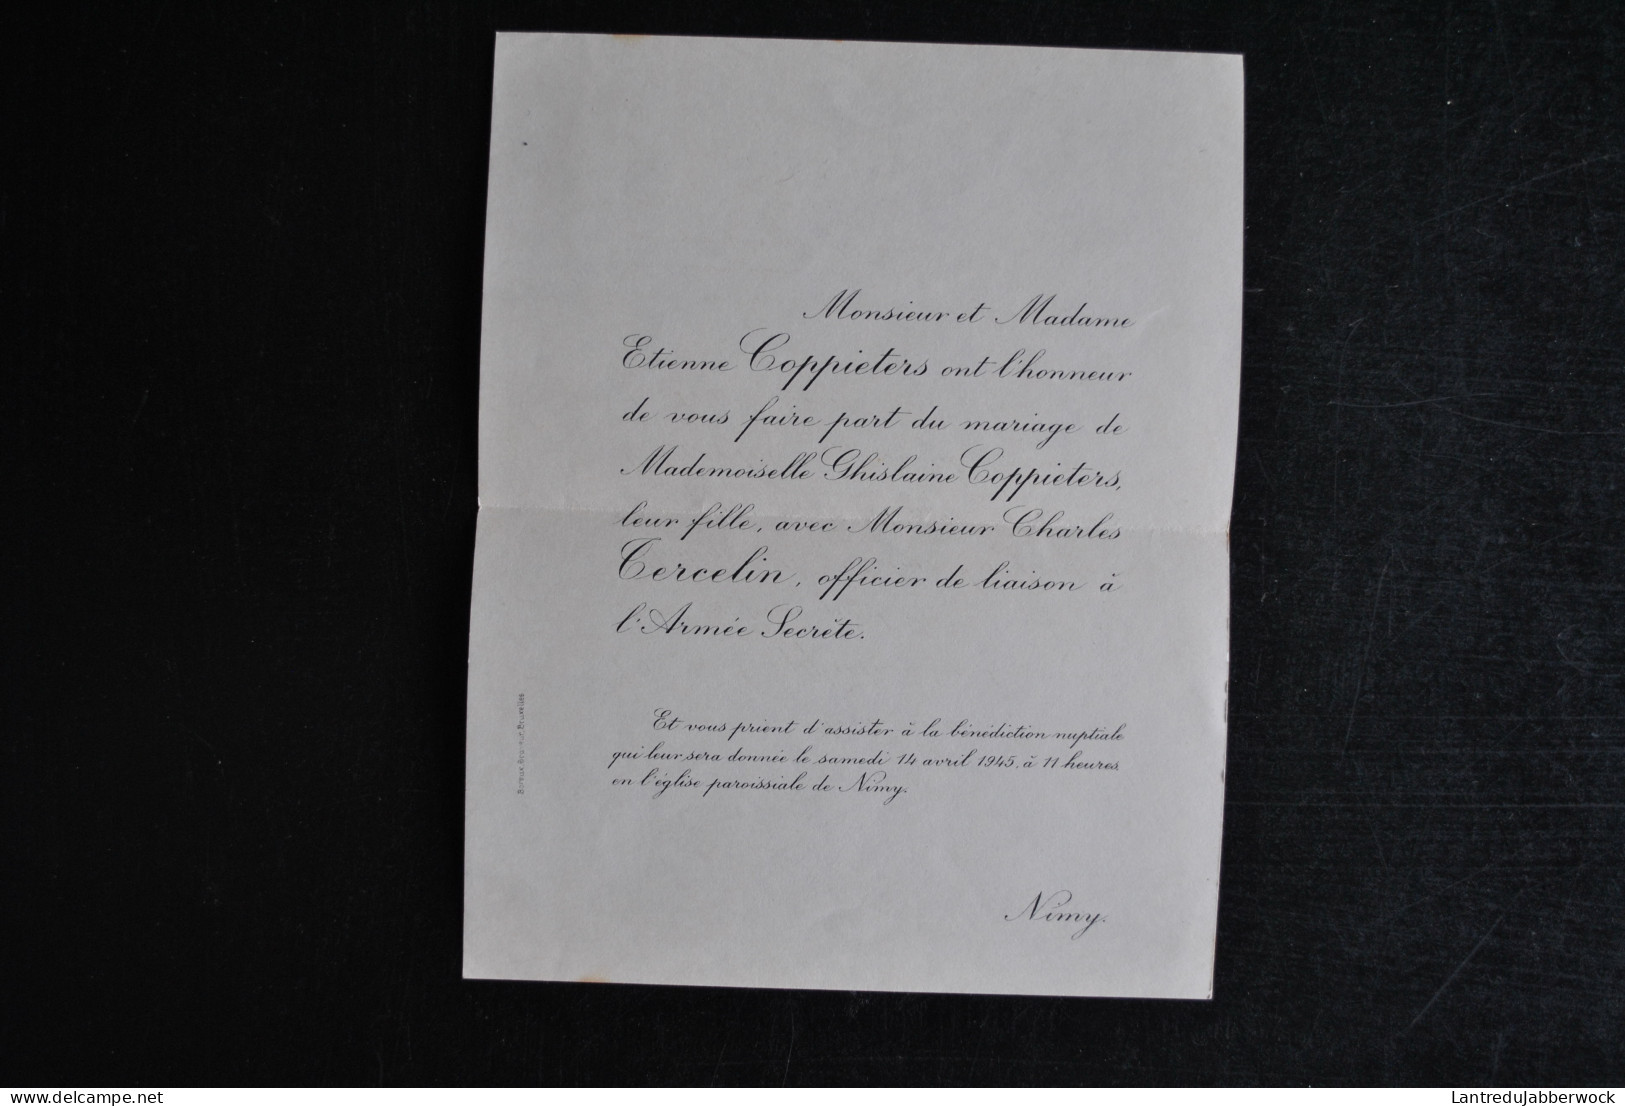 Monsieur et Madame
Etienne Coppieters ont l'honneur
de vous faire part du mariage de
Mademoiselle Ghislaine Coppieters,
leur fille, avec Monsieur Charles
Tercelin, officier de liaison à
l'Armée Secrète.
Et vous prient d'assister à la bénédiction nuptiale
qui leur sera donnée le samedi 14 avril 1945, à 11 heures
en l'église paroissiale de Nimy.
Nimy.
Bruxelles
delcampe.net
LantreduJabberwock